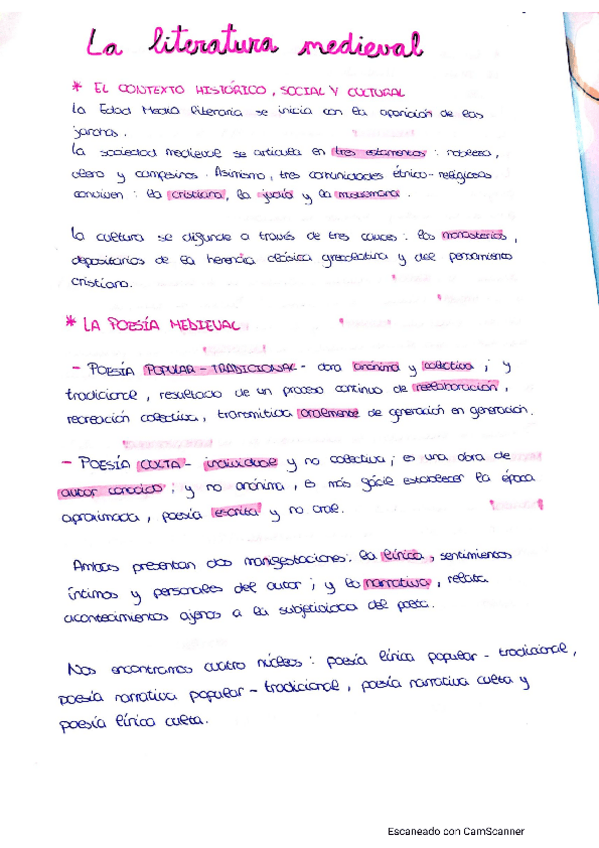 La literatura medieval
* EL CONTEXTO HISTÓRICO, SOCIAL Y CULTURAL
La Edad Media literaria se inicia con la aparición de las
jarchas.
La sociedad medieval se articula en tres estamentos: nobleza,
clero y campesinos. Asimismo, tres comunidades étnico-religiosas
conviven: la cristiana, la judía y la musulmana.
La cultura se difunde a través de tres cauces: los monasterios,
depositarios de la herencia clásica grecolatina y del pensamiento
cristiano.
* LA POESÍA MEDIEVAL
- POESÍA POPULAR-TRADICIONAL- obra anónima y colectiva; y
tradicional, resultado de un proceso continuo de reelaboración,
recreación colectiva, transmitida oralmente de generación en generación.
- POESÍA CULTA- individual y no colectiva; es una obra de
autor conocido; y no anónima, es más fácil establecer la época
aproximada, poesía escrita y no oral.
Ambas presentan dos manifestaciones: la lírica, sentimientos
íntimos y personales del autor; y la narrativa, relata
acontecimientos ajenos a la subjetividad del poeta.
Nos encontramos cuatro núcleos: poesía lírica popular-tradicional,
poesía narrativa popular-tradicional, poesía narrativa culta y
poesía lírica culta.
Escaneado con CamScanner